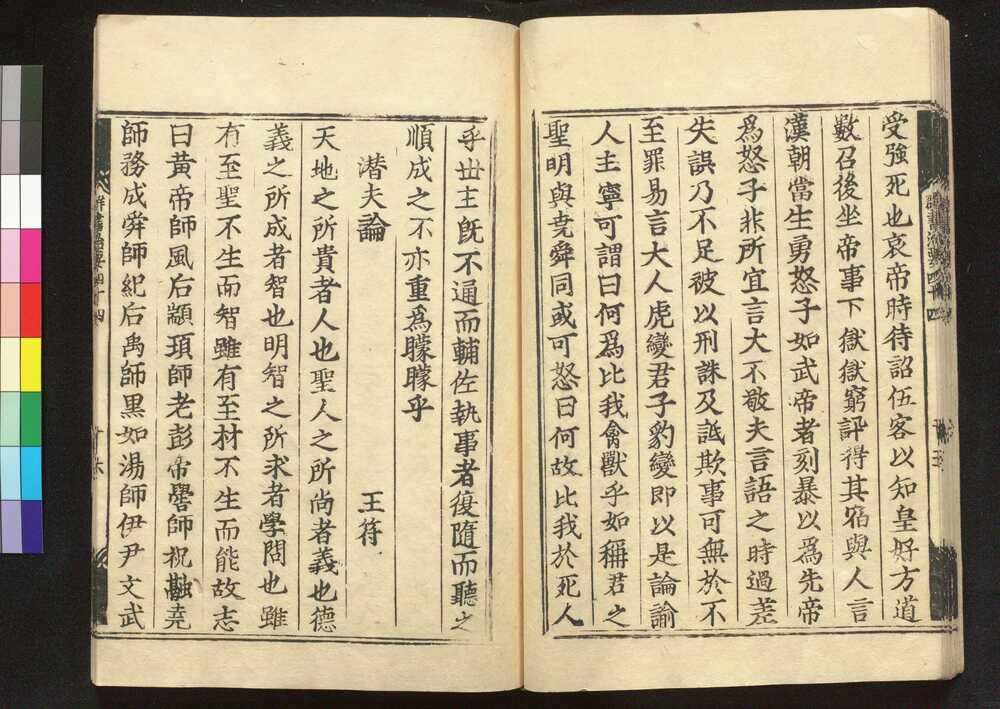 受強死也哀帝時待詔伍客以知皇好方道
數召後坐帝事下獄獄窮評得其宿與人言
漢朝當生勇怒子如武帝者刻暴以爲先帝
爲怒子非所宜言大不敬夫言語之時過差
失誤乃不足被以刑誅及詆欺事可無於不
至罪易言大人虎變君子豹變即以是論諭
人主寧可謂曰何爲比我禽獸乎如稱君之
聖明與堯舜同或可怒曰何故比我於死人
乎世主既不通而輔佐執事者復隨而聽之
順成之不亦重爲矇矇乎
潜夫論 王符
天地之所貴者人也聖人之所尚者義也德
義之所成者智也明智之所求者學問也雖
有至聖不生而智雖有至材不生而能故志
曰黃帝師風后顓頊師老彭帝嚳師祝融堯
師務成舜師紀后禹師黑如湯師伊尹文武
群書治要四十四